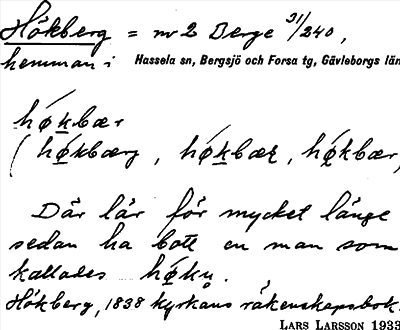 Hökberg = nr 2 Berge 31/240,
hemman i Hassela sn, Bergsjö och Forsa tg, Gävleborgs län
hø̀kbær
(hø̀kbærg, hø̀kbæʀ, hø̀kbær,
Där lär för mycket länge
sedan ha bott en man som
kallades
Hökberg, 1838 kyrkans räkenskapsbok.
LARS LARSSON 1933